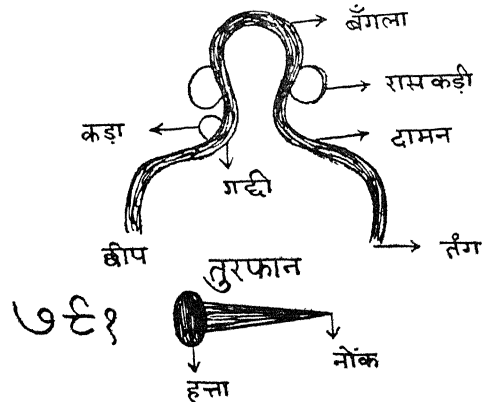 बँगला
रास कड़ी
कड़ा
दामन
गद्दी
छीप
तंग
तुरफान
७९१
नोंक
हत्ता